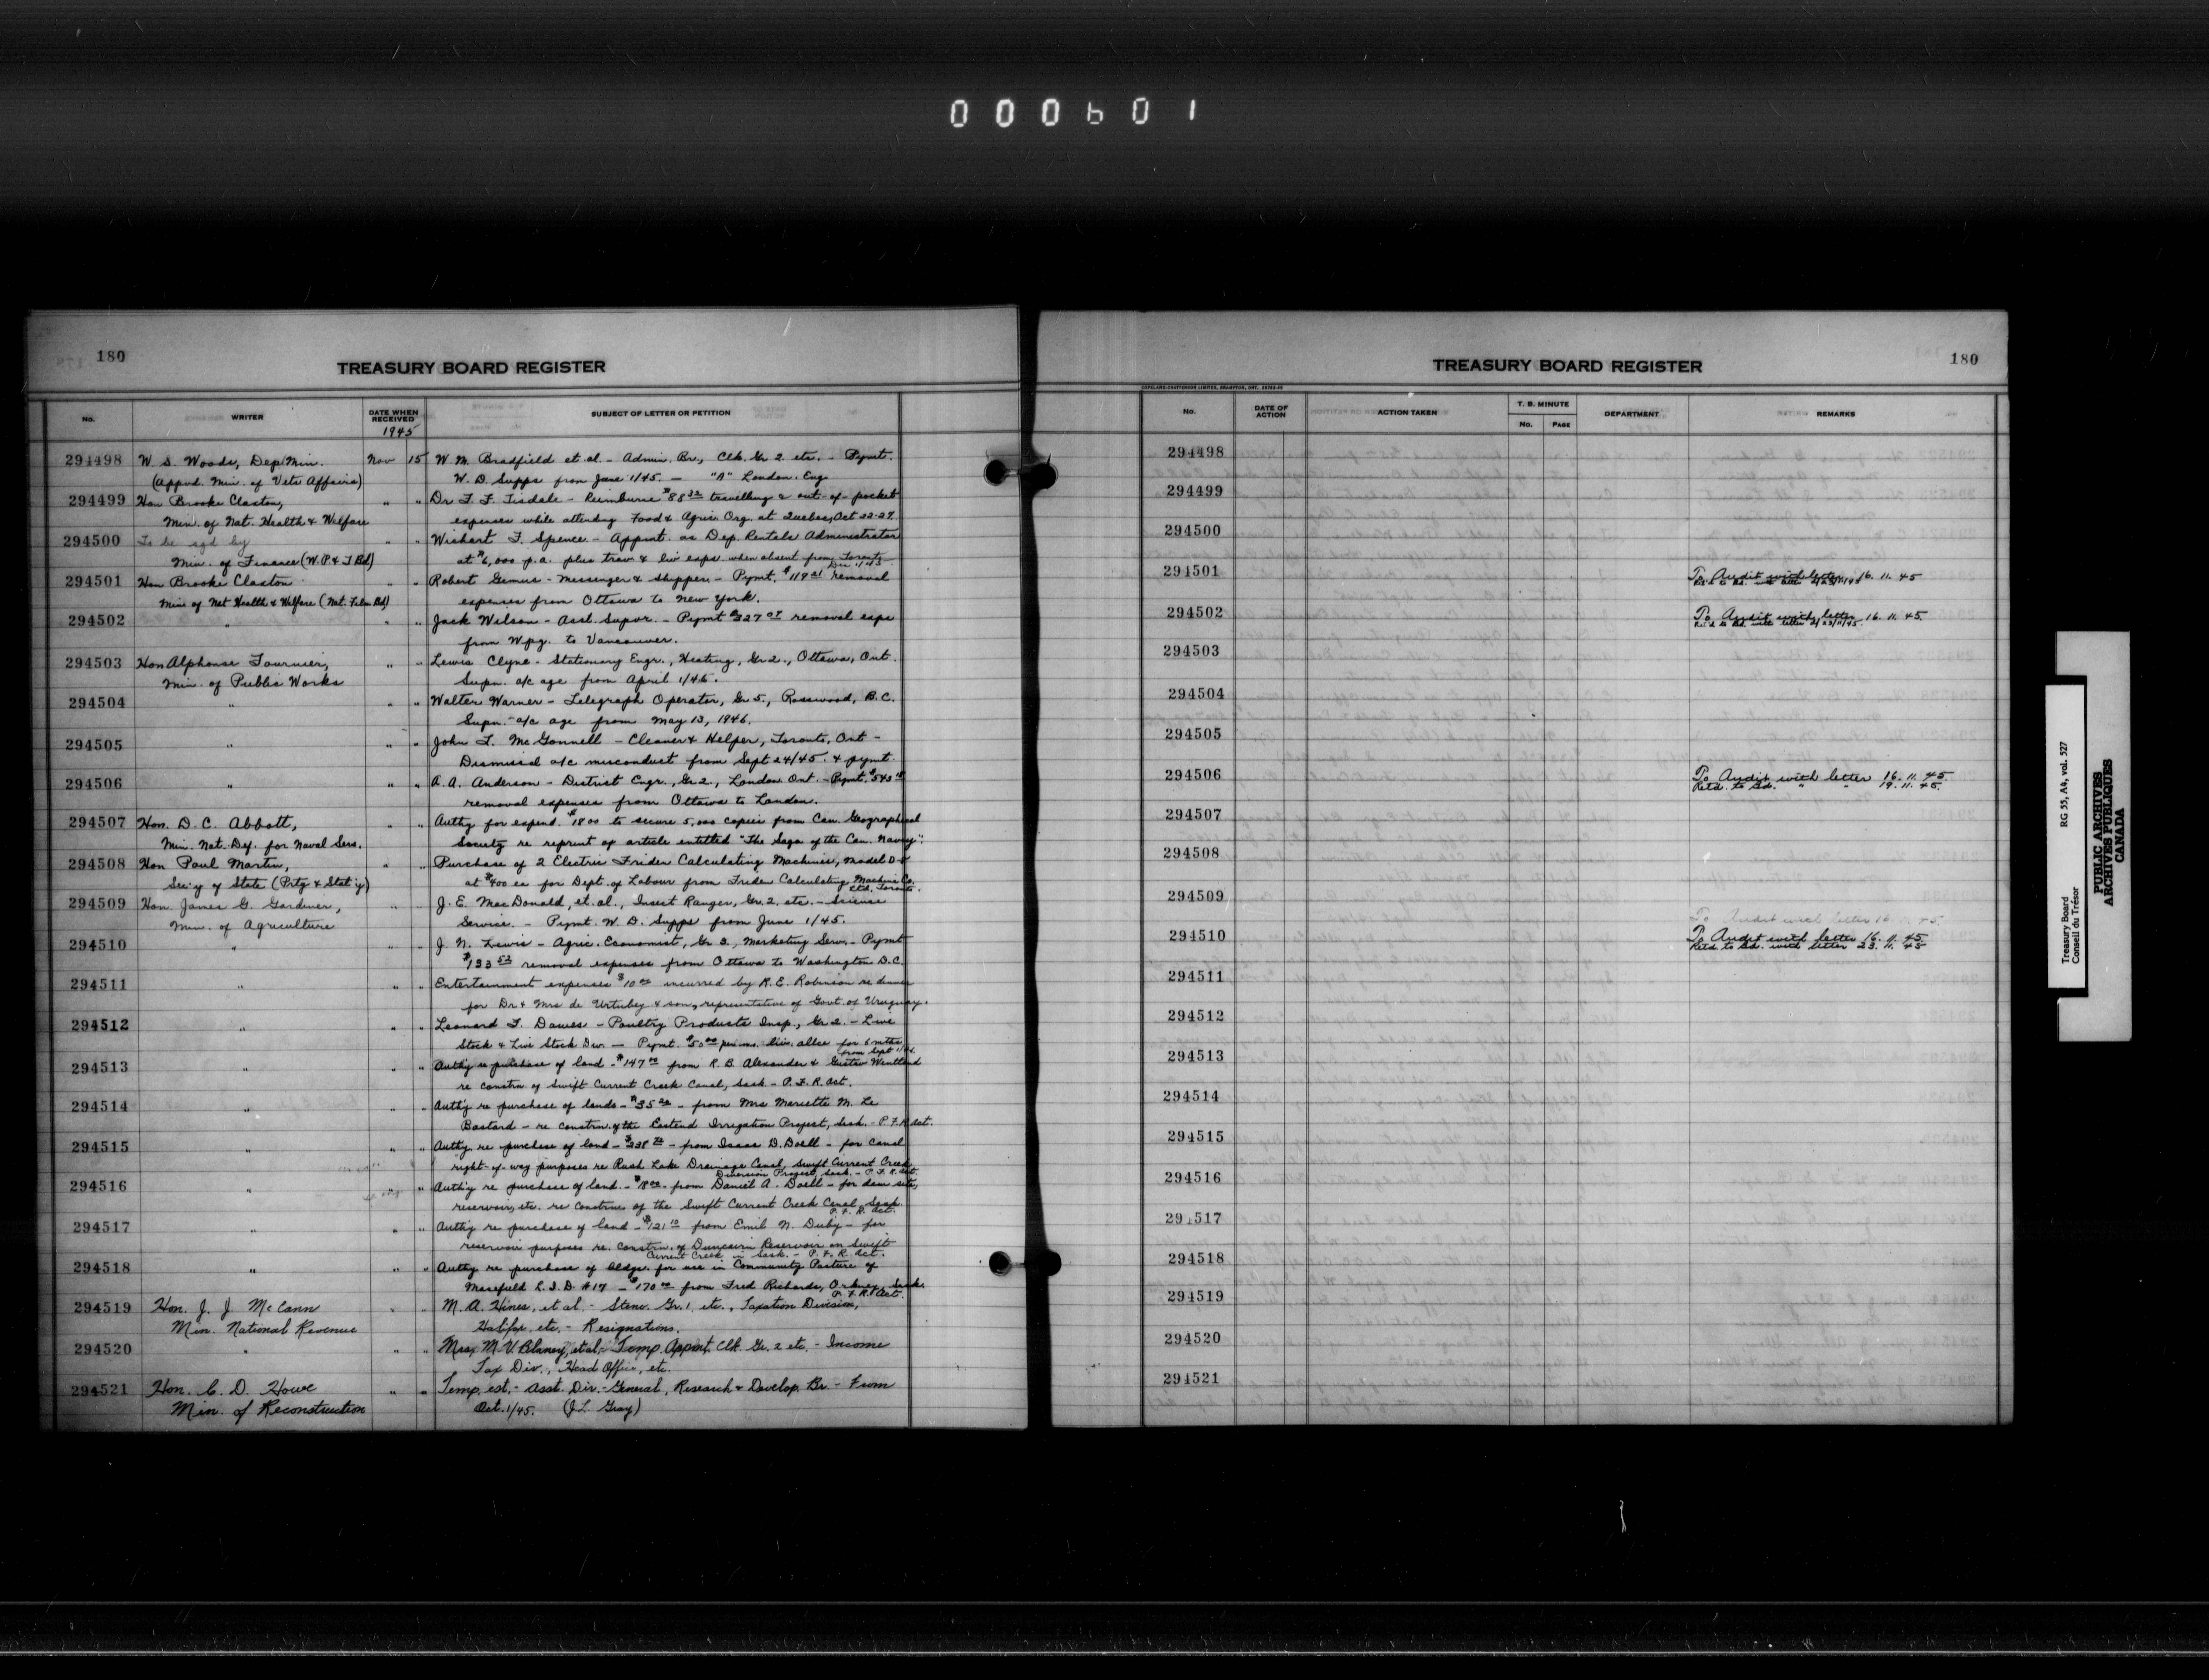 000601
180
TREASURY BOARD REGISTER
No.
WRITER
DATE WHEN RECEIVED
1945
SUBJECT OF LETTER OR PETITION
294498 W. S. Woods, Dep Min. Nov 15 W. M. Bradfield et al. - Admin. Br., Clk. Gr 2 etc. - Pymt.
(Appvd. Min. of Vets Affairs) W. D. Supps from June 1/45. - "A" London. Eng
294499 Hon Brooke Claxton, " " Dr F. F. Tisdale - Reimburse $88 32 travelling & out-of-pocket
Min. of Nat. Health & Welfare expenses while attending Food & Agric. Org. at Quebec, Oct 22-27.
294500 To be sgd by " " Wishart F. Spence - Appmt. as Dep. Rentals Administrator
Min. of Finance (W.P. & T Bd) at $6,000 p.a. plus trav & liv exps when absent from Toronto
294501 Hon Brooke Claxton " " Robert Gemus - Messenger & Shipper - Pymt. $119 21 removal
Min of Nat Health & Welfare (Nat. Film Bd) expenses from Ottawa to New York.
294502 " " " Jack Wilson - Asst. Supvr. - Pymt $327 07 removal exps
from Wpg. to Vancouver.
294503 Hon Alphonse Fournier, " " Lewis Clyne - Stationary Engr., Heating, Gr 2., Ottawa, Ont.
Min. of Public Works Supn. a/c age from April 1/46.
294504 " " " Walter Warner - Telegraph Operator, Gr 5., Rosswood, B.C.
Supn. - a/c age from May 13, 1946.
294505 " " " John T. McGonnell - Cleaner & Helper, Toronto, Ont -
Dismissal a/c misconduct from Sept 24/45. & pymt
294506 " " " A. A. Anderson - District Engr., Gr 2., London Ont. - Pymt. $543
removal expenses from Ottawa to London.
294507 Hon. D. C. Abbott, " " Authy for expend. $1800 to secure 5,000 copies from Can. Geographical
Min. Nat. Def. for Naval Serv. Society re reprint of article entitled "The Saga of the Can. Navy".
294508 Hon Paul Martin, " " Purchase of 2 Electric Friden Calculating Machines, Model D-8
Sec'y of State (Prtg & Stat'y) at $400 ea for Dept. of Labour from Friden Calculating Machine Co.
Ltd. Toronto.
294509 Hon. James G. Gardiner, " " J. E. MacDonald, et. al., Insect Ranger, Gr. 2. etc. - Science
Min. of Agriculture Service. - Pymt. W. D. Supps from June 1/45.
294510 " " " J. N. Lewis - Agric. Economist, Gr 3., Marketing Serv. - Pymt
$133 53 removal expenses from Ottawa to Washington D.C.
294511 " " " Entertainment expenses $10 00 incurred by R. E. Robinson re dinner
for Dr & Mrs de Urtubey & son, representative of Govt. of Uruguay.
294512 " " " Leonard T. Dawes - Poultry Products Insp., Gr 2. - Live
Stock & Live Stock Div. - Pymt. $50 00 per mo. liv. allce for 6 mths
from Sept 1/45.
294513 " " " Authy re purchase of land - $147 00 from R. B. Alexander & Gustav Wentland
re constrn of Swift Current Creek Canal, Sask - P. F. R. Act.
294514 " " " Auth'y re purchase of lands - $35 20 - from Mrs Mariette M. Le
Bastard - re constrn. of the Eastend Irrigation Project, Sask. - P. F. R Act.
294515 " " " Authy. re purchase of land - - from Isaac D. Doell - for canal
right-of-way purposes re Rush Lake Drainage Canal, Swift Current Creek
Diversion Project, Sask. - P. F. R. Act.
294516 " " " Auth'y re purchase of land. - $18 00 - from Daniel A. Doell - for dam site,
reservoir, etc. re constrn of the Swift Current Creek Canal, Sask.
P. F. R. Act.
294517 " " " Auth'y re purchase of land - $121 10 from Emil N. Duby - for
reservoir purposes re. constrn. of Duncairn Reservoir on Swift
Current Creek in Sask. - P. F. R. Act.
294518 " " " Authy re purchase of bldgs. for use in Community Pasture of
Masefield L.I.D. #17 - $170 00 from Fred Richards, Orkney, Sask.
P. F. R. Act.
294519 Hon. J. J. McCann " " M. A. Hines, et al. - Steno. Gr. 1, etc., Taxation Division,
Min. National Revenue Halifax, etc. - Resignations.
294520 " " " Mrs M. V. Blaney, et al. - Temp. Appmt. Clk. Gr. 2 etc. - Income
Tax Div., Head Office, etc.
294521 Hon. C. D. Howe " " Temp. est. - Asst. Dir. - General, Research & Develop. Br. - From
Min. of Reconstruction Oct. 1/45. (J. L. Gray)
TREASURY BOARD REGISTER
180
COPELAND-CHATTERSON LIMITED, BRAMPTON, ONT.
No.
DATE OF ACTION
ACTION TAKEN
T. B. MINUTE
No.
PAGE
DEPARTMENT
REMARKS
294498
294499
294500
294501 To Audit with letter 16. 11. 45
294502 To Audit with letter 16. 11. 45.
Ret'd to Bd. with letter 23/11/45.
294503
294504
294505
294506 To Audit with letter 16. 11. 45
Retd. to Bd. " " 19. 11. 45.
294507
294508
294509
To Audit with letter 16. 11. 45
294510 To Audit with letter 16. 11. 45
Retd to Bd. with letter 23. 11. 45
294511
294512
294513
294514
294515
294516
29 517
294518
294519
294520
294521
Treasury Board RG 55, A4, vol. 527
Conseil du Trésor
PUBLIC ARCHIVES
ARCHIVES PUBLIQUES
CANADA